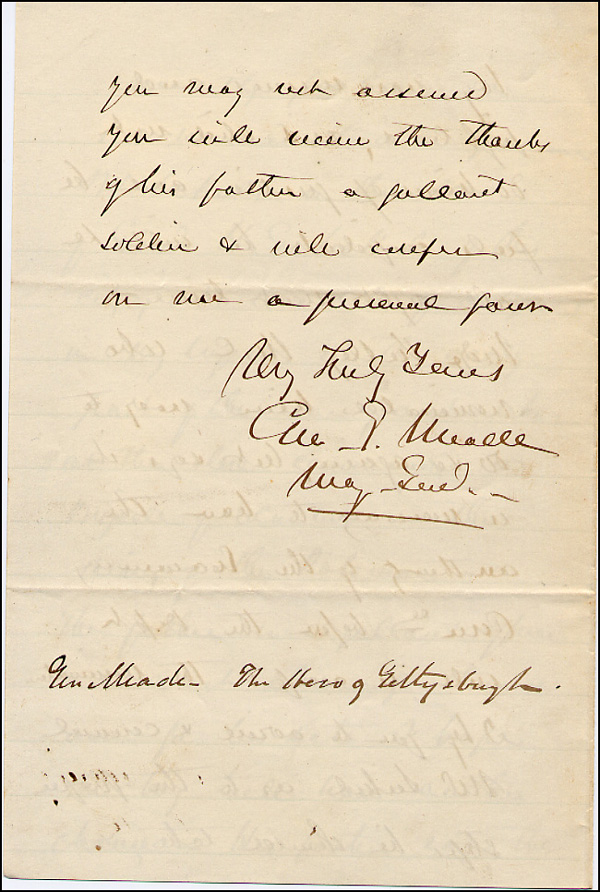 you may rest assured
you will receive the thanks
of his father a gallant
soldier & will confer
on me a personal favor
Very Truly Yours
Geo. G. Meade
Maj. Genl.
Gen Meade - The Hero of Gettysburgh.